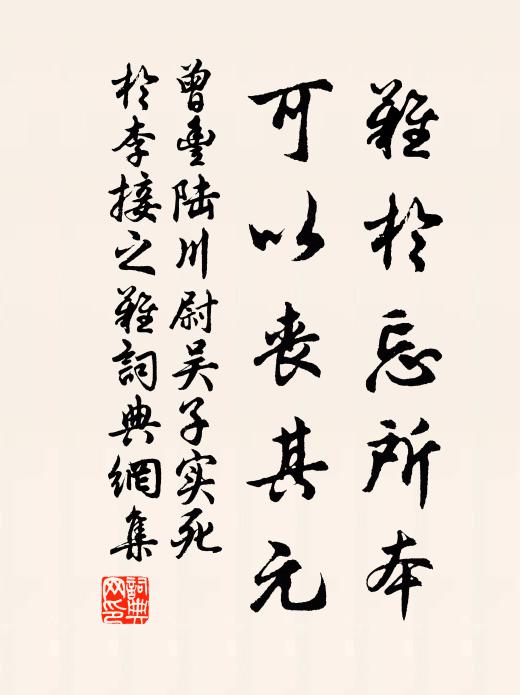 難於忘所本
可以丧其元
曾豊陆川尉吴子实死
於李接之難詞典網集
詞典网印